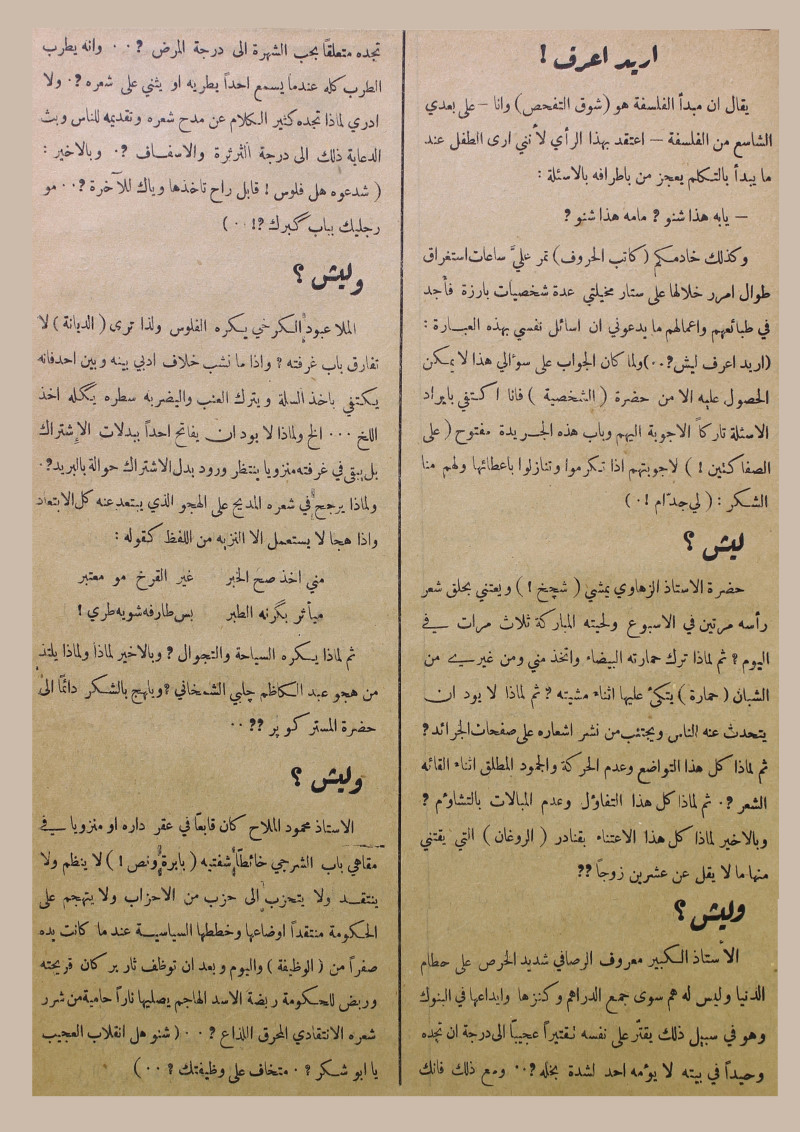 اريد اعرف !
يقال ان مبدأ الفلسفة هو (شوق التفحص) وانا – على بعدي
الشاسع من الفلسفة – اعتقد بهذا الرأي لأنني ارى الطفل عند
ما يبدأ بالتكلم يعجز من باطرافه بالاسئلة :
– يابه هذا شنو ? مامه هذا شنو ?
وكذلك خادمكم (كاتب الحروف) تمر عليّ ساعات استغراق
طوال امرر خلالها على ستار مخيلتي عدة شخصيات بارزة فأجد
في طبائعهم واعمالهم ما يدعوني ان اسائل نفسي بهذه العبارة :
(اريد اعرف ليش?٠٠) ولما كان الجواب على سؤالي هذا لا يمكن
الحصول عليه الا من حضرة ( الشخصية ) فانا اكتفي بايراد
الاسئلة تاركاً الاجوبة اليهم وباب هذه الجريدة مفتوح ( على
الصفاكتين ! ) لاجوبتهم اذا تكرموا وتنازلوا باعطائها ولهم منا
الشكر : ( لي جدّام !٠ )
ليش ؟
حضرة الاستاذ الزهاوي يمشي ( شچخ ! ) ويعتني بحلق شعر
رأسه مرتين في الاسبوع ولحيته المباركة ثلاث مرات في
اليوم ? ثم لماذا ترك حمارته البيضاء واتخذ مني ومن غيري من
الشبان ( حمارة ) يتكئ عليها اثناء مشيته ? ثم لماذا لا يود ان
يتحدث عنه الناس ويجتنب من نشر اشعاره على صفحات الجرائد ?
ثم لماذا كل هذا التواضع وعدم الحركة والجمود المطلق اثناء القائه
الشعر ?٠ ثم لماذا كل هذا التفاؤل وعدم المبالات بالتشاؤم ?
وبالاخير لماذا كل هذا الاعتناء بقنادر ( الروغان ) التي يقتني
منها ما لا يقل عن عشرين زوجاً ??
وليش ؟
الأستاذ الكبير معروف الرصافي شديد الحرص على حطام
الدنيا وليس له هم سوى جمع الدراهم وكنزها وايداعها في البنوك
وهو في سبيل ذلك يقتّر على نفسه تقتيراً عجيباً الى درجة ان تجده
وحيداً في بيته لا يؤمه احد لشدة بخله ?٠٠ ومع ذلك فانك
تجده متعلقاً بحب الشهرة الى درجة المرض ?٠٠ وانه يطرب
الطرب كله عندما يسمع احداً يطريه او يثني على شعره ?٠ ولا
ادري لماذا تجده كثير الكلام عن مدح شعره وتقديمه للناس وبث
الدعاية لذلك الى درجة الثرثرة والاسفاف ?٠ وبالاخير :
( شدعوه هل فلوس ! قابل راح تاخذها وياك للآخرة ?٠٠ مو
رجليك بباب گبرك ?!٠٠ )
وليش ؟
الملا عبود الكرخي يكره الفلوس ولذا ترى ( الديانة ) لا
تفارق باب غرفته ? واذا ما نشب خلاف ادبي بينه وبين احد فانه
يكتفي باخذ السلة ويترك العنب واليضربه سطره يگله اخذ
اللخ ٠٠٠ الخ ولماذا لا يود ان يفاتح احداً ببدلات الاشتراك
بل يبقى في غرفته منزويا ينتظر ورود بدل الاشتراك حوالة بالبريد?٠
ولماذا يرجح في شعره المديح على الهجو الذي يبتعد عنه كل الابتعاد
واذا هجا لا يستعمل الا النزيه من اللفظ كقوله :
مني اخذ صح الخبر غير القرخ مو معتبر
ميأثر بگرنه الطبر بس طارفه شويه طري !
ثم لماذا يكره السياحة والتجوال ? وبالاخير لماذا ولماذا يلتذ
من هجو عبد الكاظم چلبي الشمخاني ? ويلهج بالشكر دائماً الى
حضرة المستر كوپر ??٠٠
وليش ؟
الاستاذ محمود الملاح كان قابعاً في عقر داره او منزويا في
مقاهي باب الشرجي خائطاً شفتيه ( بابرة ونص ! ) لا ينظم ولا
ينتقد ولا يتحزب الى حزب من الاحزاب ولا يتهجم على
الحكومة منتقداً اوضاعها وخططها السياسية عند ما كانت يده
صفراً من ( الوظيفة ) واليوم وبعد ان توظف ثار بركان قريحته
وربض للحكومة ربضة الاسد الهاجم يصليها ناراً حامية من شرر
شعره الانتقادي المحرق اللذاع ?٠٠ ( شنو هل انقلاب العجيب
يا ابو شكر ?٠ متخاف على وظيفتك ?٠٠ )